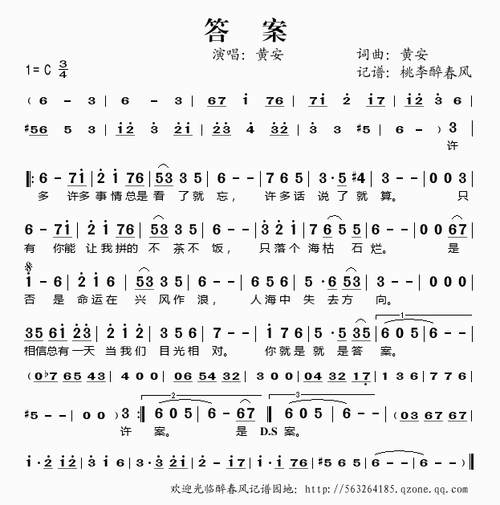 答 案
演唱：黄安 词曲：黄安
1=C 3/4 记谱：桃李醉春风
(6 - 3 | 6 - 3 | 67 1 76 | 71 2 17 | 12 3 21
#56 5 3 | 12 3 21 | 23 4 32 | 3 - 3 | #5 - | 6 - 0 6 - ) 3
许
6 - 71 | 2 1 76 | 53 3 5 | 6 - 7 | 6 7 5 | 3·5 #4 | 3 - | 0 0 3
多 许多事情总是看了就忘，许多话说了就算。只
6 - 71 | 2 1 76 | 53 3 5 | 6 - 7 | 6 7 5 | 3·5 1 7 | 6 - | 0 0 7
有 你能让我拼的不茶不饭，只落个海枯石烂。是
1 - 6 | 2 1 6 | 53 3 5 | 6 - 1 | 2 7 6 | 5·3 5 6 | 3 - | 3 -
否是命运在兴风作浪，人海中失去方向。
35 61 23 | 2 1 7 | 6 5 3 | 6 - | 1 7 6 | 5·3 35 | 6 0 5 | 6 - | 1
相信总有一天当我们目光相对。你就是就是答案。
(0b7 65 43 | 4 0 0 | 06 54 32 | 3 0 0 | 04 32 17 | 1 3 6 | 7 7 6
#5 - | 0 0 ) 3 | 2 6 0 5 | 6 - 67 | 3 6 0 5 | 6 - | (03 67 67
许 案。 是 D.S 案。
1·2 12 | 1·7 17 | 6·5 43 | 6 - | 6 - )
欢迎光临醉春风记谱园地：http://563264185.qzone.qq.com/